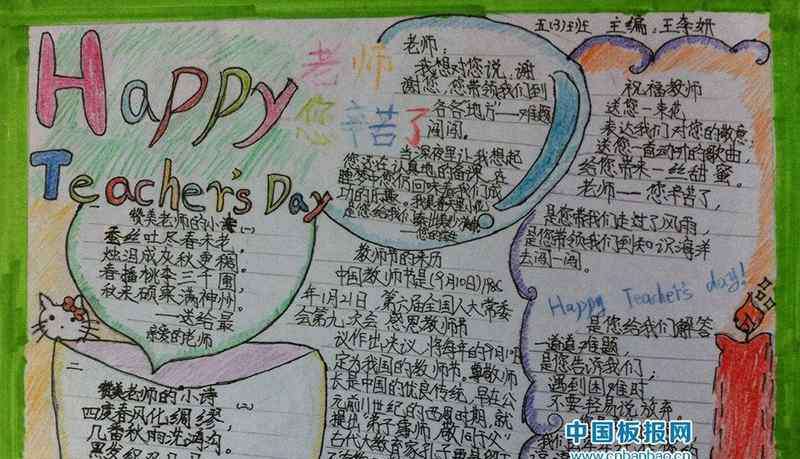 五(3)班 主编:王李妍
Happy
Teacher's Day
老师
您辛苦了
老师:
我想对您说:谢
谢您,您带领我们到
各各地方"——难题
闯闯。
当深夜里让我想起
您还在认真地备课,在
睡梦中你仍回味着我们成
功的乐趣。
是您给我们
祝福教师
送您一束花,
表达我们对您的敬意;
送您一首动听的歌曲,
给您带来一丝甜蜜。
老师——您辛苦了,
是您带我们走过了风雨,
是您带领我们到知识海洋
去闯一闯。
Happy Teacher's day!
是您给我们解答
一道道难题,
是您告诉我们,
遇到困难时
不要轻易说放弃
赞美老师的小诗(一)
蚕丝吐尽春未老,
烛泪成灰秋更稠。
春播桃李三千圃,
秋来硕果满神州。
——送给最
亲爱的老师
教师节的来历
中国教师节是(9月10日)198
年1月21日,第六届全国人大常委
会第九次会
议作出决议,将每年的9月10
定为我国的教师节。尊敬师
长是中国的优良传统,早在公
元前11世纪的西周时期,就
提出"弟子事师,敬同于父"
古代大教育家孔子更是留下
二
赞美老师的小诗(二)
四度春风化绸缪,
几番秋雨洗鸿沟。
中国板报网
www.cnbanbao.cn